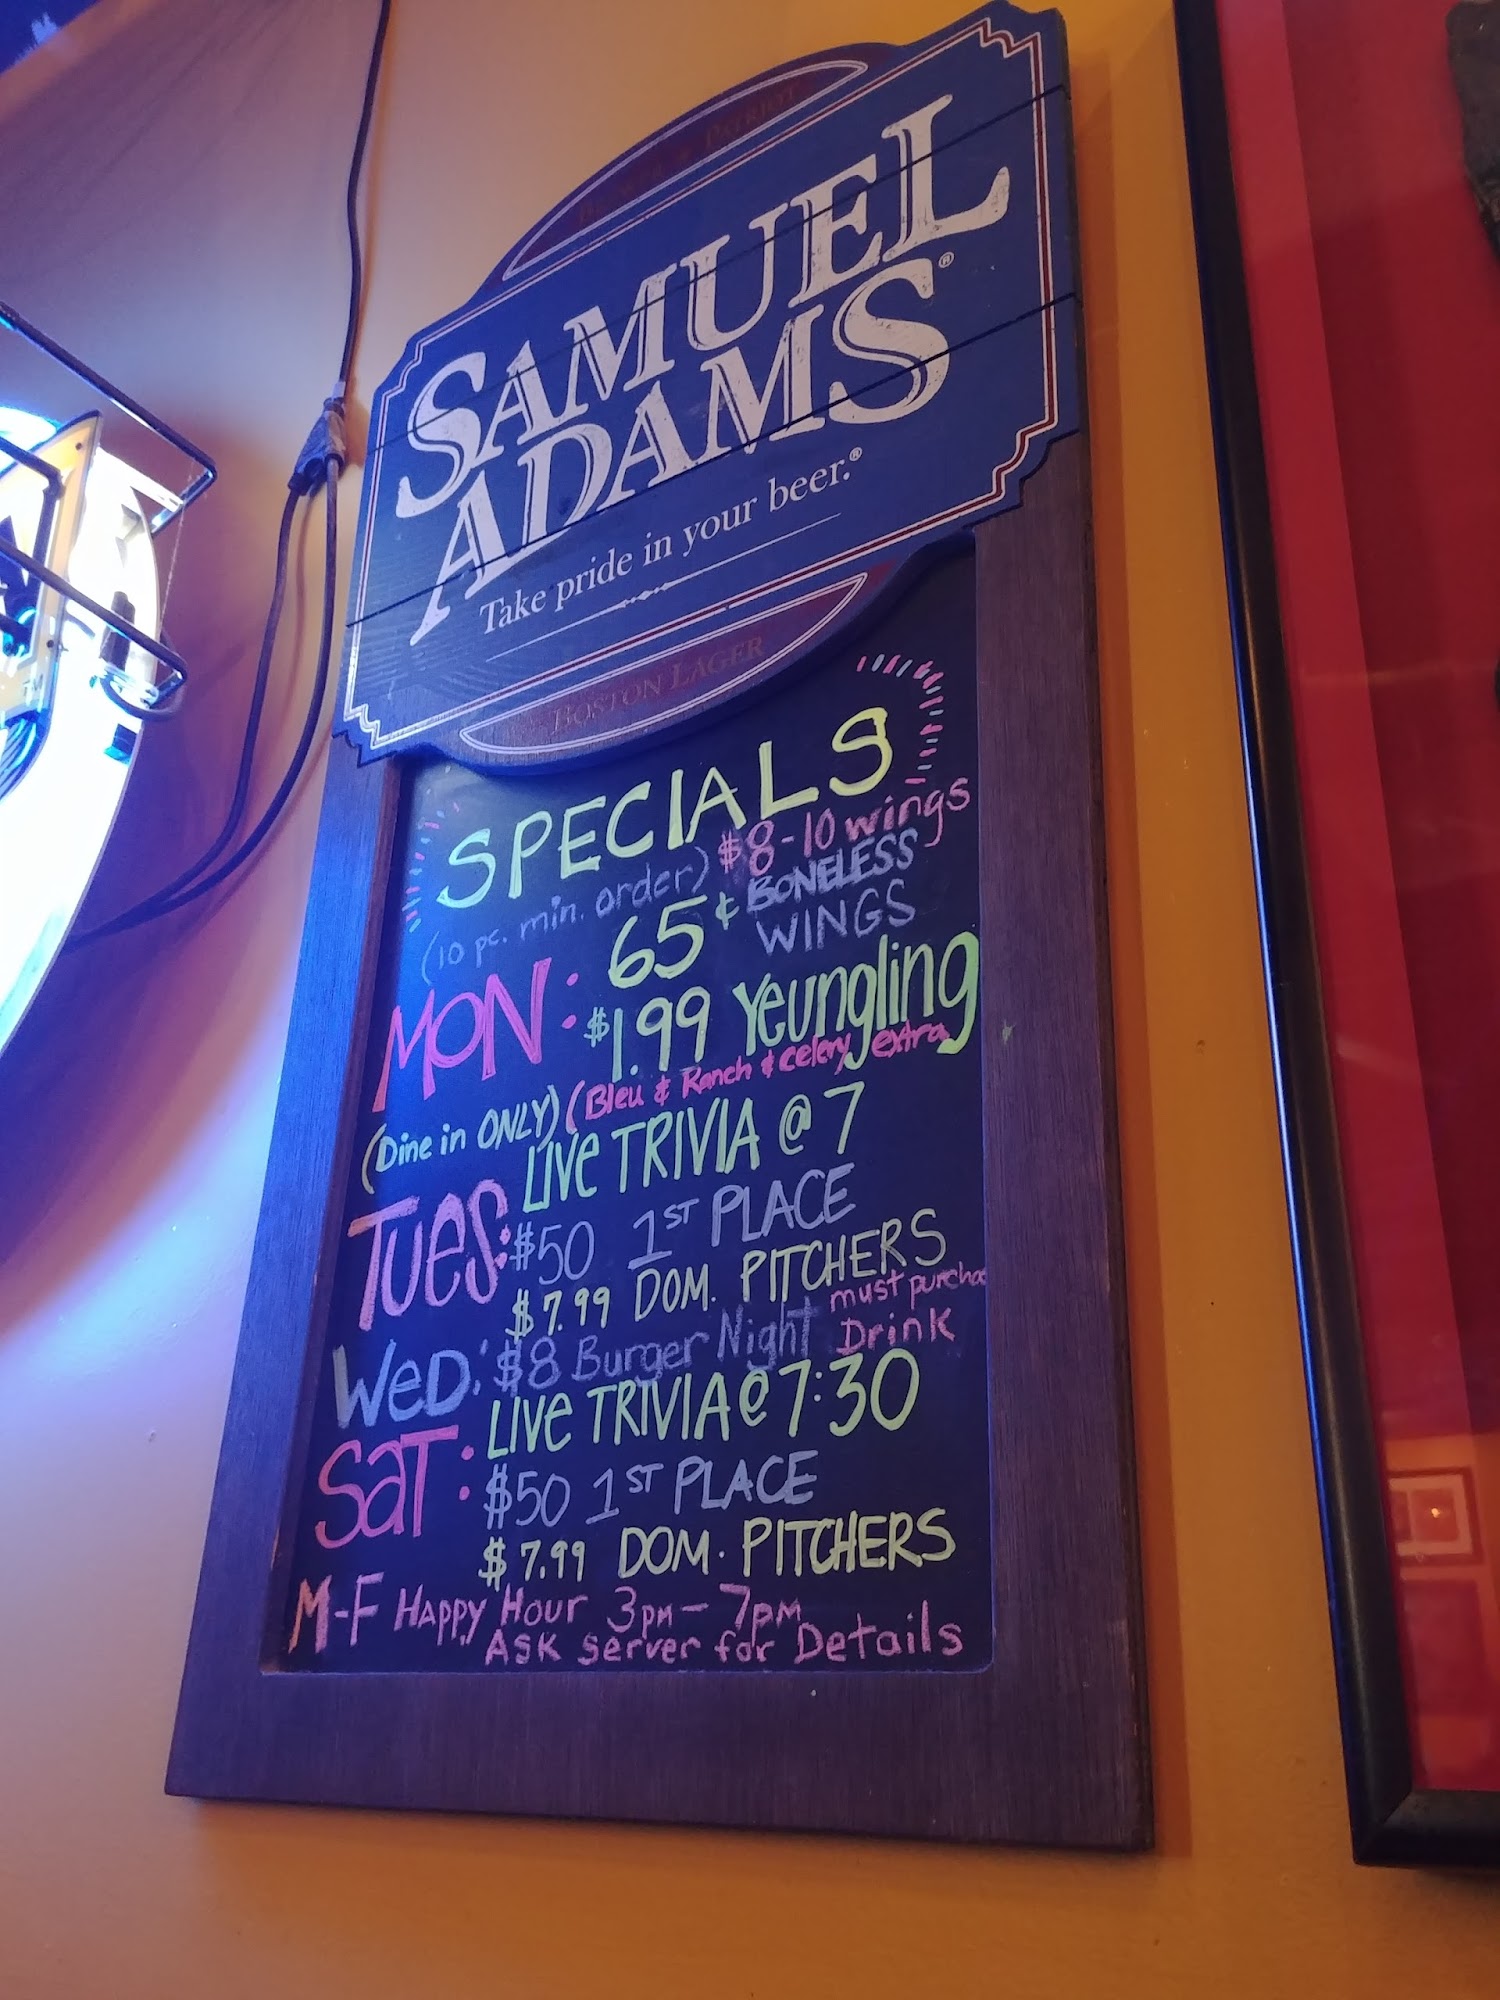 BREWER PATRIOT
SAMUEL
ADAMS®
Take pride in your beer.®
BOSTON LAGER
SPECIALS
(10 pc. min. order) $8-10 wings
MON: 65¢ BONELESS
WINGS
$1.99 Yeungling
(Dine in ONLY) (Bleu & Ranch & celery extra
TUES: LIVE TRIVIA @ 7
$50 1ST PLACE
$7.99 DOM. PITCHERS
WED: $8 Burger Night must purchase
Drink
SAT: LIVE TRIVIA @ 7:30
$50 1ST PLACE
$7.99 DOM. PITCHERS
M-F Happy Hour 3pm - 7pm
Ask server for Details